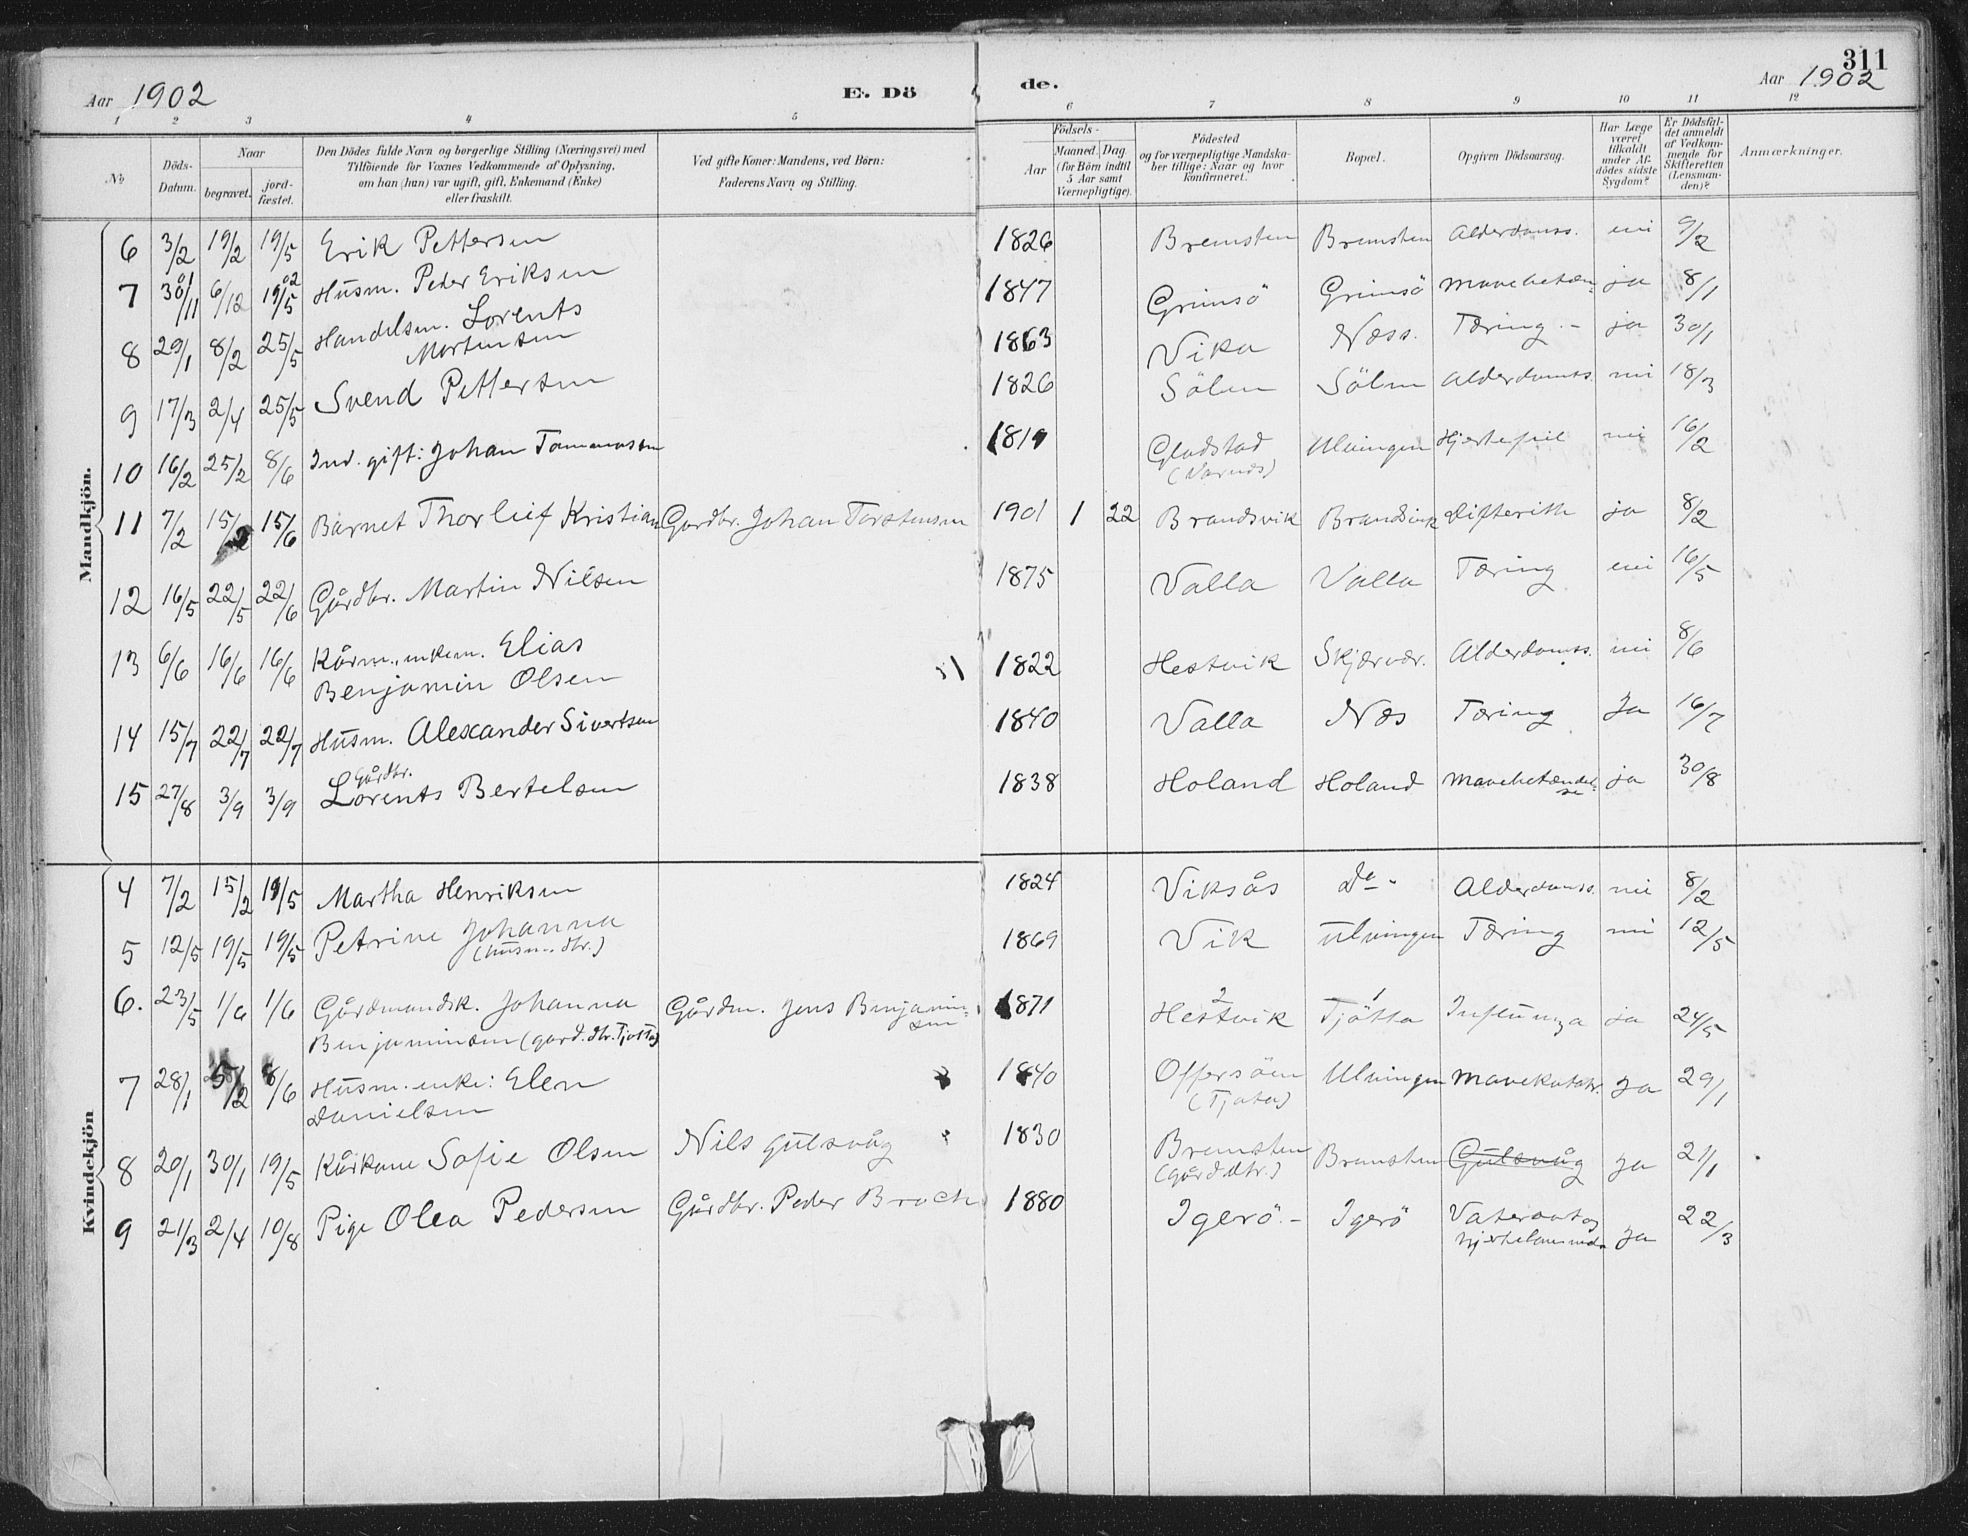 Aar 1902
E. Dö
de.
311
Aar 1902
1 2 3 4 5 6 7 8 9 10 11 12
No
Döds-
Datum.
Naar
begravet.
jord-
fæstet.
Den Dödes fulde Navn og borgerlige Stilling (Næringsvei) med
Tilföiende for Voxnes Vedkommende af Oplysning,
om han (hun) var ugift, gift, Enkemand (Enke)
eller fraskilt.
Ved gifte Koner: Mandens, ved Börn:
Faderens Navn og Stilling.
Födsels-
Aar
Maaned. Dag
(for Börn indtil
5 Aar samt
Værnepligtige).
Födested
og for værnepligtige Mandska-
ber tillige: Naar og hvor
konfirmeret.
Bopæl.
Opgiven Dödsaarsag.
Har Læge
været
tilkaldt
under Af-
dödes sidste
Sygdom?
Er Dödsfal-
det anmeldt
af Vedkom-
mende for
Skifteretten
(Lensman-
den)?
Anmærkninger.
Mandkjön.
6 3/2 19/2 19/5 Erik Pettersen 1826 Bremsten Bremsten Alderdomss. nei 9/2
7 30/11 01 6/12 19/5 02 Husm. Peder Eriksen 1847 Grimsö Grimsö Mavebetæn- ja 8/1
8 29/1 8/2 25/5 Handelsm. Lorents
Mortensen 1863 Vika Næss. Tæring.- ja 30/1
9 17/3 2/4 25/5 Svend Pettersen 1826 Sölen Sölen Alderdomss. nei 18/3
10 16/2 25/2 8/6 Ind. gift: Johan Tommassen 1819 Gladstad Ulvingen Hjertefeil nei 16/2
(Varnæs)
11 7/2 15/2 15/6 Barnet Thorleif Kristian Gardbr. Johan Torstensen 1901 1 22 Brandsvik Brandsvik Difterith ja 8/2
12 16/5 22/5 22/6 Gårdbr. Martin Nilsen 1875 Valla Valla Tæring nei 16/5
13 6/6 16/6 16/6 Kårm., enkem. Elias
Benjamin Olsen 1822 Hestvik Skjærvær. Alderdomss. nei 8/6
14 15/7 22/7 22/7 Husm. Alexander Sivertsen 1840 Valla Næs Tæring Ja 16/7
15 27/8 3/9 3/9 Gårdbr.
Lorents Bertelsen 1838 Holand Holand Mavebetændel-
se ja 30/8
Kvindekjön
4 7/2 15/2 19/5 Martha Henriksen 1824 Viksås Do. Alderdomss. nei 8/2
5 12/5 19/5 19/5 Petrine Johanna
(husm. dtr.) 1869 Vik Ulvingen Tæring nei 12/5
6. 23/5 1/6 1/6 Gårdmandsk. Johanna Gårdm. Jens Benjamin-
sen
Benjaminsen (gard. dtr. Tjøtta) 1871 2 Hestvik 1 Tjötta Influenza ja 24/5
7 28/1 5/2 8/6 Husm. enke: Elen
Danielsen 1840 Offersöen Ulvingen Mavekatahr. Ja 29/1
(Tjøta)
8 20/1 30/1 19/5 Kårkone Sofie Olsen Nils Gulsvåg 1830 Bremsten Bremsten Gulsvåg Ja 21/1
(gård. dtr.)
9 21/3 2/4 10/8 Pige Olea Pedersen Gårdbr. Peder Broch 1880 Igerö.- Igerö Vatersot og Ja 22/3